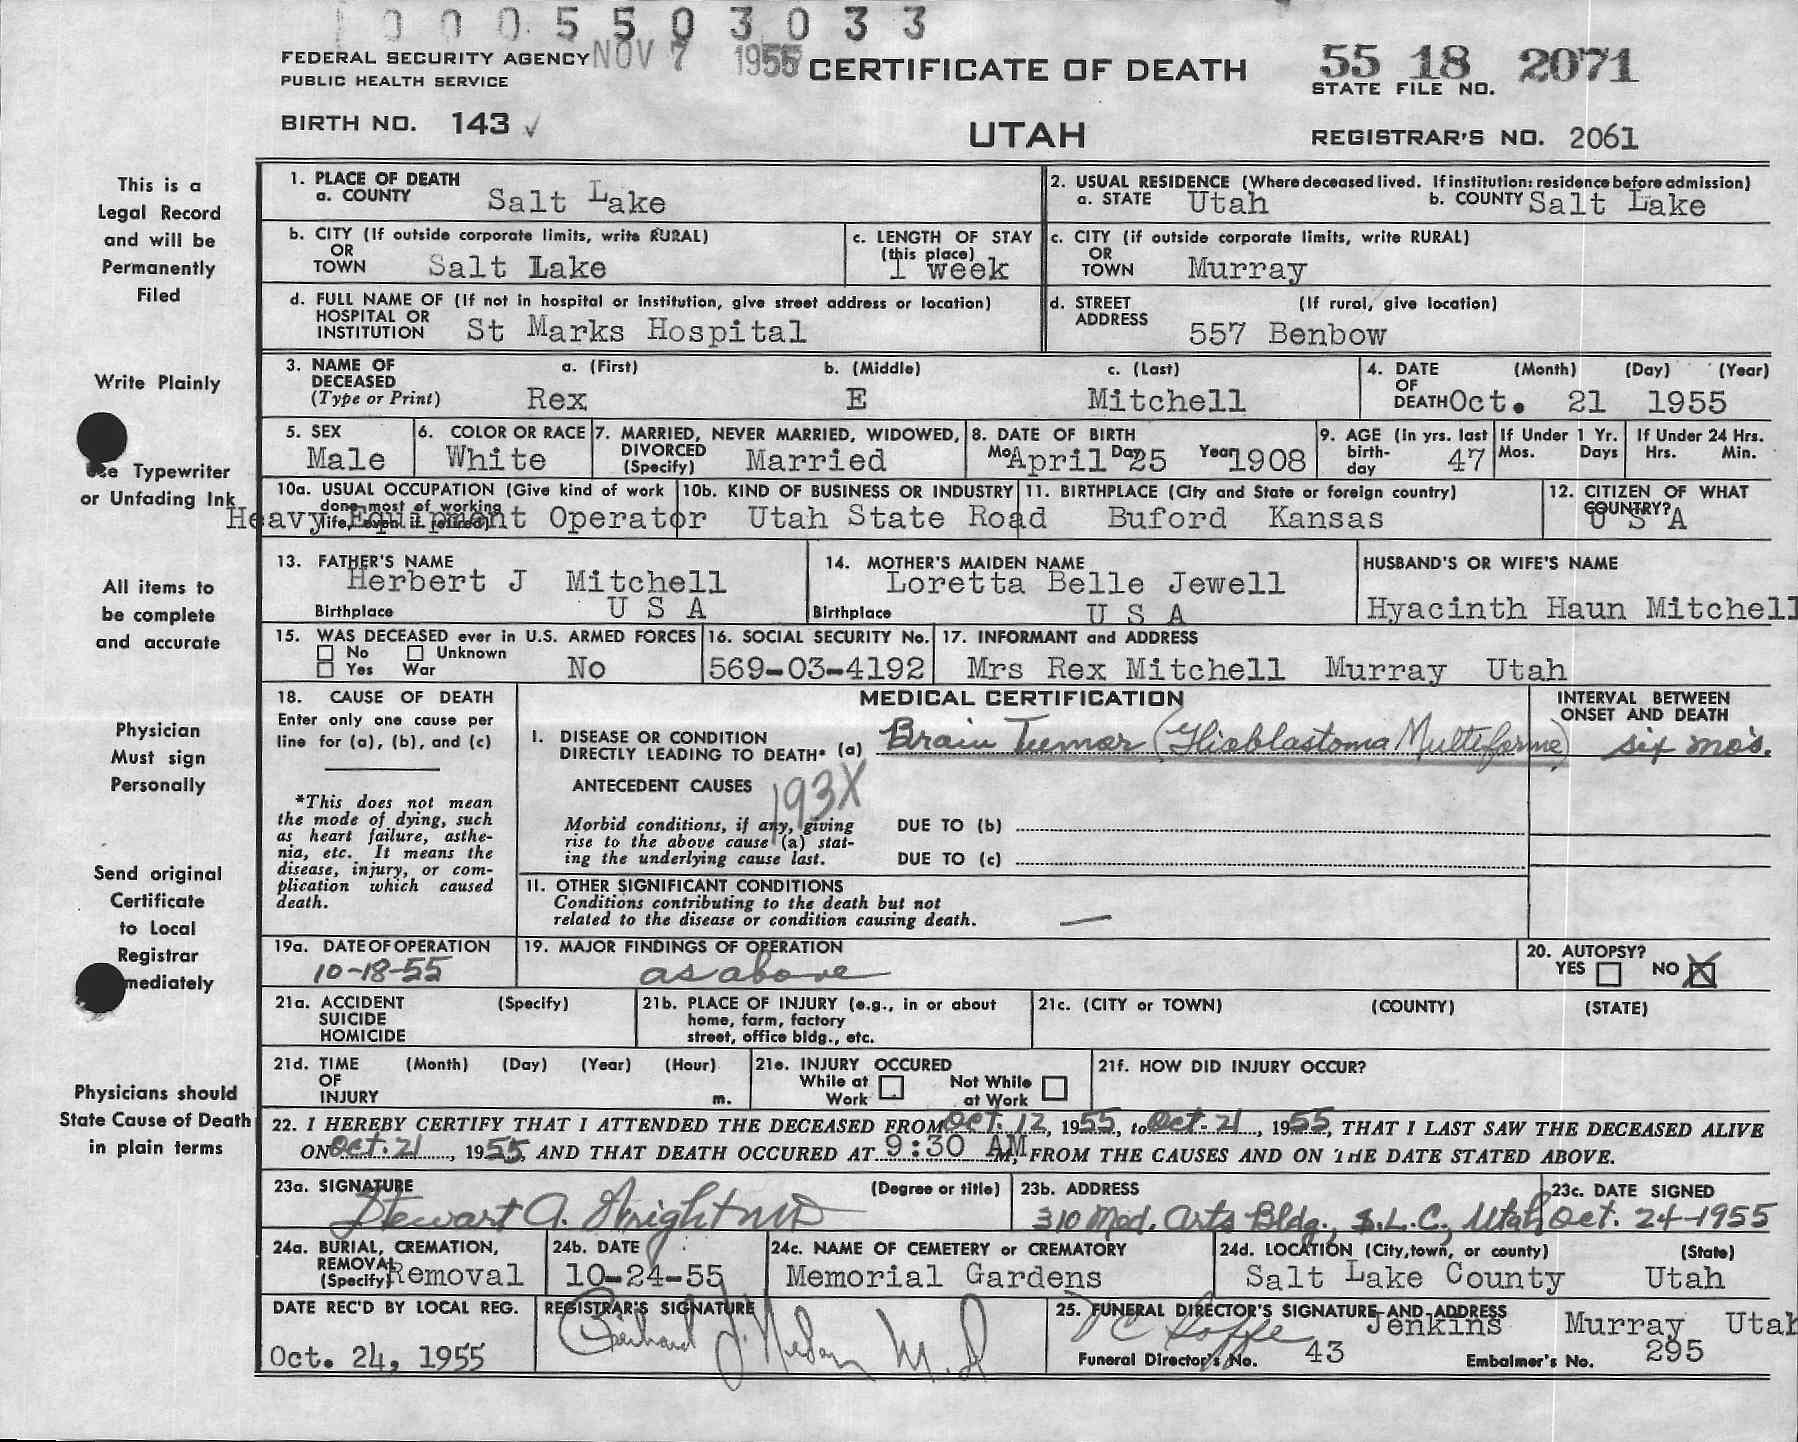 0005503033
FEDERAL SECURITY AGENCY NOV 7 1955 CERTIFICATE OF DEATH 55 18 2071
PUBLIC HEALTH SERVICE STATE FILE NO.
BIRTH NO. 143 UTAH REGISTRAR'S NO. 2061
This is a
Legal Record
and will be
Permanently
Filed
Write Plainly
Use Typewriter
or Unfading Ink
All items to
be complete
and accurate
Physician
Must sign
Personally
Send original
Certificate
to Local
Registrar
mediately
Physicians should
State Cause of Death
in plain terms
1. PLACE OF DEATH
a. COUNTY Salt Lake
2. USUAL RESIDENCE (Where deceased lived. If institution: residence before admission)
a. STATE Utah b. COUNTY Salt Lake
b. CITY (If outside corporate limits, write RURAL)
OR
TOWN Salt Lake
c. LENGTH OF STAY
(this place)
1 week
c. CITY (if outside corporate limits, write RURAL)
OR
TOWN Murray
d. FULL NAME OF (If not in hospital or institution, give street address or location)
HOSPITAL OR
INSTITUTION St Marks Hospital
d. STREET (If rural, give location)
ADDRESS
557 Benbow
3. NAME OF a. (First) b. (Middle) c. (Last)
DECEASED
(Type or Print) Rex E Mitchell
4. DATE (Month) (Day) (Year)
OF
DEATH Oct. 21 1955
5. SEX
Male
6. COLOR OR RACE
White
7. MARRIED, NEVER MARRIED, WIDOWED,
DIVORCED
(Specify) Married
8. DATE OF BIRTH
Mo April Day 25 Year 1908
9. AGE (In yrs. last
birth-
day 47
If Under 1 Yr.
Mos. Days
If Under 24 Hrs.
Hrs. Min.
10a. USUAL OCCUPATION (Give kind of work
done most of working
life, even if retired)
Heavy Equipment Operator
10b. KIND OF BUSINESS OR INDUSTRY
Utah State Road
11. BIRTHPLACE (City and State or foreign country)
Buford Kansas
12. CITIZEN OF WHAT
COUNTRY?
U S A
13. FATHER'S NAME
Herbert J Mitchell
Birthplace U S A
14. MOTHER'S MAIDEN NAME
Loretta Belle Jewell
Birthplace U S A
HUSBAND'S OR WIFE'S NAME
Hyacinth Haun Mitchell
15. WAS DECEASED ever in U.S. ARMED FORCES
No Unknown
Yes War No
16. SOCIAL SECURITY No.
569-03-4192
17. INFORMANT and ADDRESS
Mrs Rex Mitchell Murray Utah
18. CAUSE OF DEATH
Enter only one cause per
line for (a), (b), and (c)
*This does not mean
the mode of dying, such
as heart failure, asthe-
nia, etc. It means the
disease, injury, or com-
plication which caused
death.
MEDICAL CERTIFICATION
INTERVAL BETWEEN
ONSET AND DEATH
I. DISEASE OR CONDITION
DIRECTLY LEADING TO DEATH* (a) Brain Tumor (Glioblastoma Multiforme) six mo's.
ANTECEDENT CAUSES 193X
Morbid conditions, if any, giving
rise to the above cause (a) stat-
ing the underlying cause last.
DUE TO (b)
DUE TO (c)
II. OTHER SIGNIFICANT CONDITIONS
Conditions contributing to the death but not
related to the disease or condition causing death. —
19a. DATE OF OPERATION
10-18-55
19. MAJOR FINDINGS OF OPERATION
as above
20. AUTOPSY?
YES NO X
21a. ACCIDENT (Specify)
SUICIDE
HOMICIDE
21b. PLACE OF INJURY (e.g., in or about
home, farm, factory
street, office bldg., etc.
21c. (CITY or TOWN) (COUNTY) (STATE)
21d. TIME (Month) (Day) (Year) (Hour)
OF
INJURY m.
21e. INJURY OCCURED
While at Work Not While at Work
21f. HOW DID INJURY OCCUR?
22. I HEREBY CERTIFY THAT I ATTENDED THE DECEASED FROM Oct. 12, 1955, to Oct. 21, 1955, THAT I LAST SAW THE DECEASED ALIVE
ON Oct. 21, 1955, AND THAT DEATH OCCURED AT 9:30 AM, FROM THE CAUSES AND ON THE DATE STATED ABOVE.
23a. SIGNATURE (Degree or title)
Stewart A. Wright MD
23b. ADDRESS
310 Med. Arts Bldg., S.L.C., Utah
23c. DATE SIGNED
Oct. 24-1955
24a. BURIAL, CREMATION,
REMOVAL
(Specify) Removal
24b. DATE
10-24-55
24c. NAME OF CEMETERY or CREMATORY
Memorial Gardens
24d. LOCATION (City, town, or county) (State)
Salt Lake County Utah
DATE REC'D BY LOCAL REG.
Oct. 24, 1955
REGISTRAR'S SIGNATURE
M.D
25. FUNERAL DIRECTOR'S SIGNATURE AND ADDRESS
Jenkins Murray Utah
Funeral Director's No. 43 Embalmer's No. 295